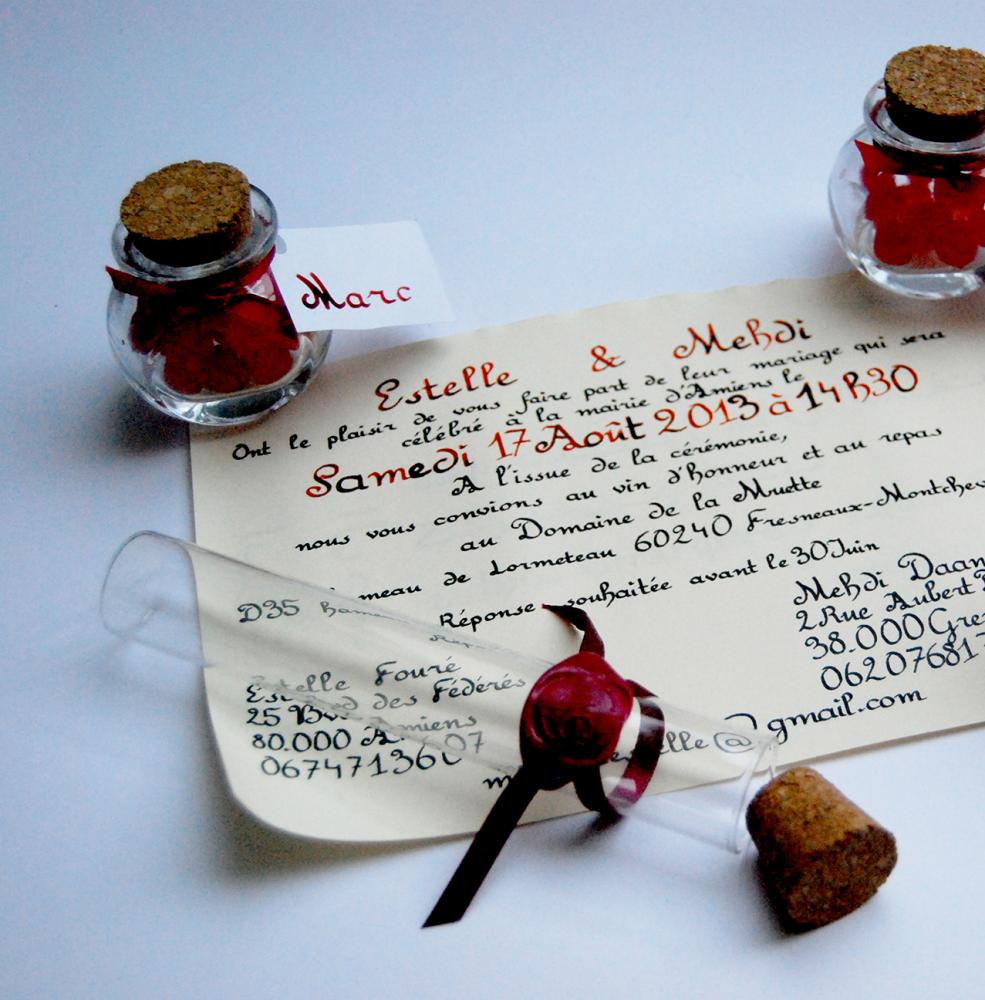 Marc
Estelle & Mehdi
Ont le plaisir de vous faire part de leur mariage qui sera
célébré à la mairie d'Amiens le
Samedi 17 Août 2013 à 14h30
A l'issue de la cérémonie,
nous vous convions au vin d'honneur et au repas
au Domaine de la Muette
D35 hameau de Lormeteau 60240 Fresneaux-Montchev
Réponse souhaitée avant le 30 Juin
Estelle Fouré
25 des Fédérés
80.000 Amiens
Mehdi Daan
2 Rue Aubert
38.000 Gre
06207681
@gmail.com